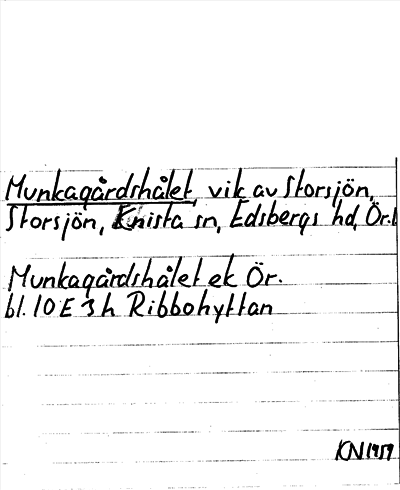 Munkagårdshålet, vik av Storsjön,
Storsjön, Knista sn, Edsbergs hd, Ör.l
Munkagårdshålet ek Ör.
bl. 10 E 3 h Ribbohyttan
KN 1959